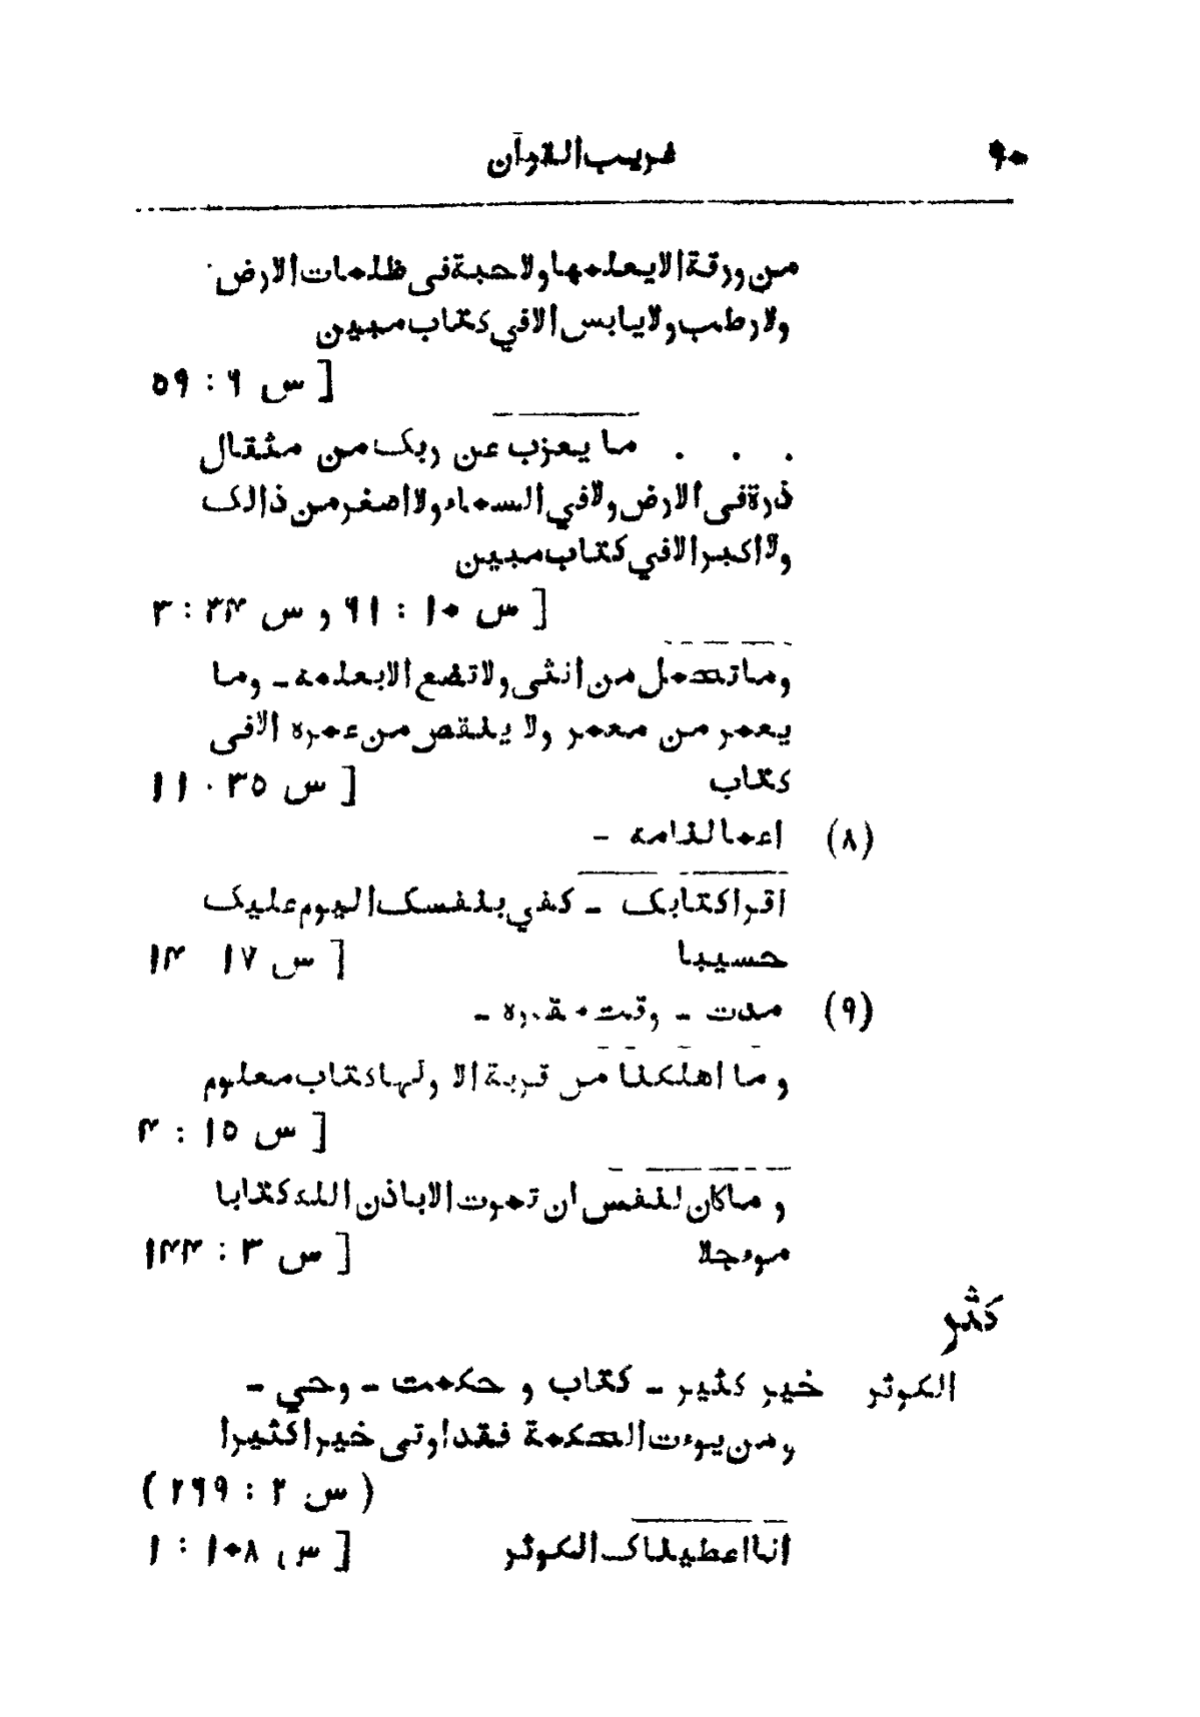 ٩٠ غريب القرآن
من ورقة الا يعلمها ولا حبة فى ظلمات الارض
ولا رطب ولا يابس الا في كتاب مبين
[ س ٦ : ٥٩
. . . ما يعزب عن ربك من مثقال
ذرة فى الارض ولا في السماء ولا اصغر من ذالك
ولا اكبر الا في كتاب مبين
[ س ١٠ : ٦١ و س ٣۴ : ٣
وما تحمل من انثى ولا تضع الا بعلمه ـ وما
يعمر من معمر ولا ينقص من عمره الا فى
كتاب [ س ٣٥ . ١١
(٨) اعمالنامه ـ
اقرا كتابك ـ كفي بنفسك اليوم عليك
حسيبا [ س ١٧ ١۴
(٩) مدت ـ وقت مقدره ـ
و ما اهلكنا من قرية الا ولها كتاب معلوم
[ س ١٥ : ۴
و ماكان لنفس ان تموت الا باذن الله كتابا
موءجلا [ س ٣ : ١۴۴
كثر
الكوثر خير كثير ـ كتاب و حكمت ـ وحي ـ
ومن يوءت الحكمة فقد اوتى خيرا كثيرا
( س ٢ : ٢٦٩ )
انا اعطيناك الكوثر [ س ١٠٨ : ١